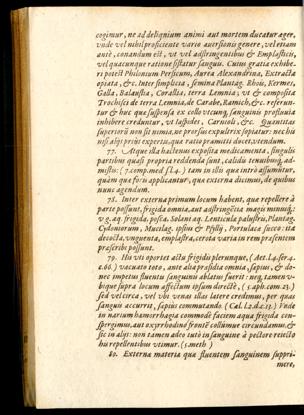 cogimur, ne ad deliqnium animi aut mortem ducatur æger,
vnde vel nihil proficiente vario auersionis genere, vel etiam
antè, conandum est, vt vel adstringentibus & Emplasticis,
vel quacunque ratione sistatur sanguis. Cuius gratia exhibe-
ri potest Philonium Persicum, Aurea Alexandrina, Extracta
opiata, &c. Inter simplicia, semina Plantag. Ebois, Kermes,
Galla, Balaustia, Corallia, terra Lemnia; vt & composita
Trochisci de terra Lemnia, de Carabe, Ramich, &c. referun-
tur & huc quæ suspensa ex collo vel manu, sanguinis profluuia
inhibere creduntur, vt Iaspides, Carnioli, &c. Quantitas
superiorū non sit nimia, ne prorsus expultrix sopiatur: nec his
nisi alijs priùs expertis, quæ ratio præmitti docet, vtendum.
77. Atque illa hactenus exposita medicamenta, singulis
partibus quasi propria reddenda sunt, calidis tenuibusq; ad-
mistis: (7. comp. med.) tam in illis quæ intrò assumitur,
quàm quæ foris applicantur, quæ externa dicimus, de quibus
nunc agendum.
78. Inter externa primum locum habent, quæ repellere à
parte possunt, frigida omnia, aut adstringētia magis minusq;
vt aq. frigida, posca. Solano aq. Lenticula palustris, Plantag.
Cydoniorum, Mucilag. ipsius & Psyllij, Portulacæ succo: ita
decocta, vnguenta, emplastra, cerota varia in rem præsentem
præscribi possunt.
79. His vti oportet actu frigidis plerunque,
vacuato toto, ante alia præsidia omnia, sæpius, & do-
nec impetus fluentis sanguinis ablatus fuerit: neq; tamen v-
bique supra locum affectum ipsum directè, (5 aph. com. 23.)
sed vel circa, vel vbi venas illas latere credimus, per quas
sanguis accurrit, sæpius commutando. (Cel. l.2. d.13.) Vnde
in narium hæmorrhagia commodè faciem aqua frigida con-
spergimus, aut oxyrrhodino frontē collumue circundamus, &
sic in alijs: non tamen adeo tutò in sanguine à pectore reiecto
his repellentibus vtimur. (5. meth.)
80. Externa materia quæ fluentem sanguinem suppri-
mere,